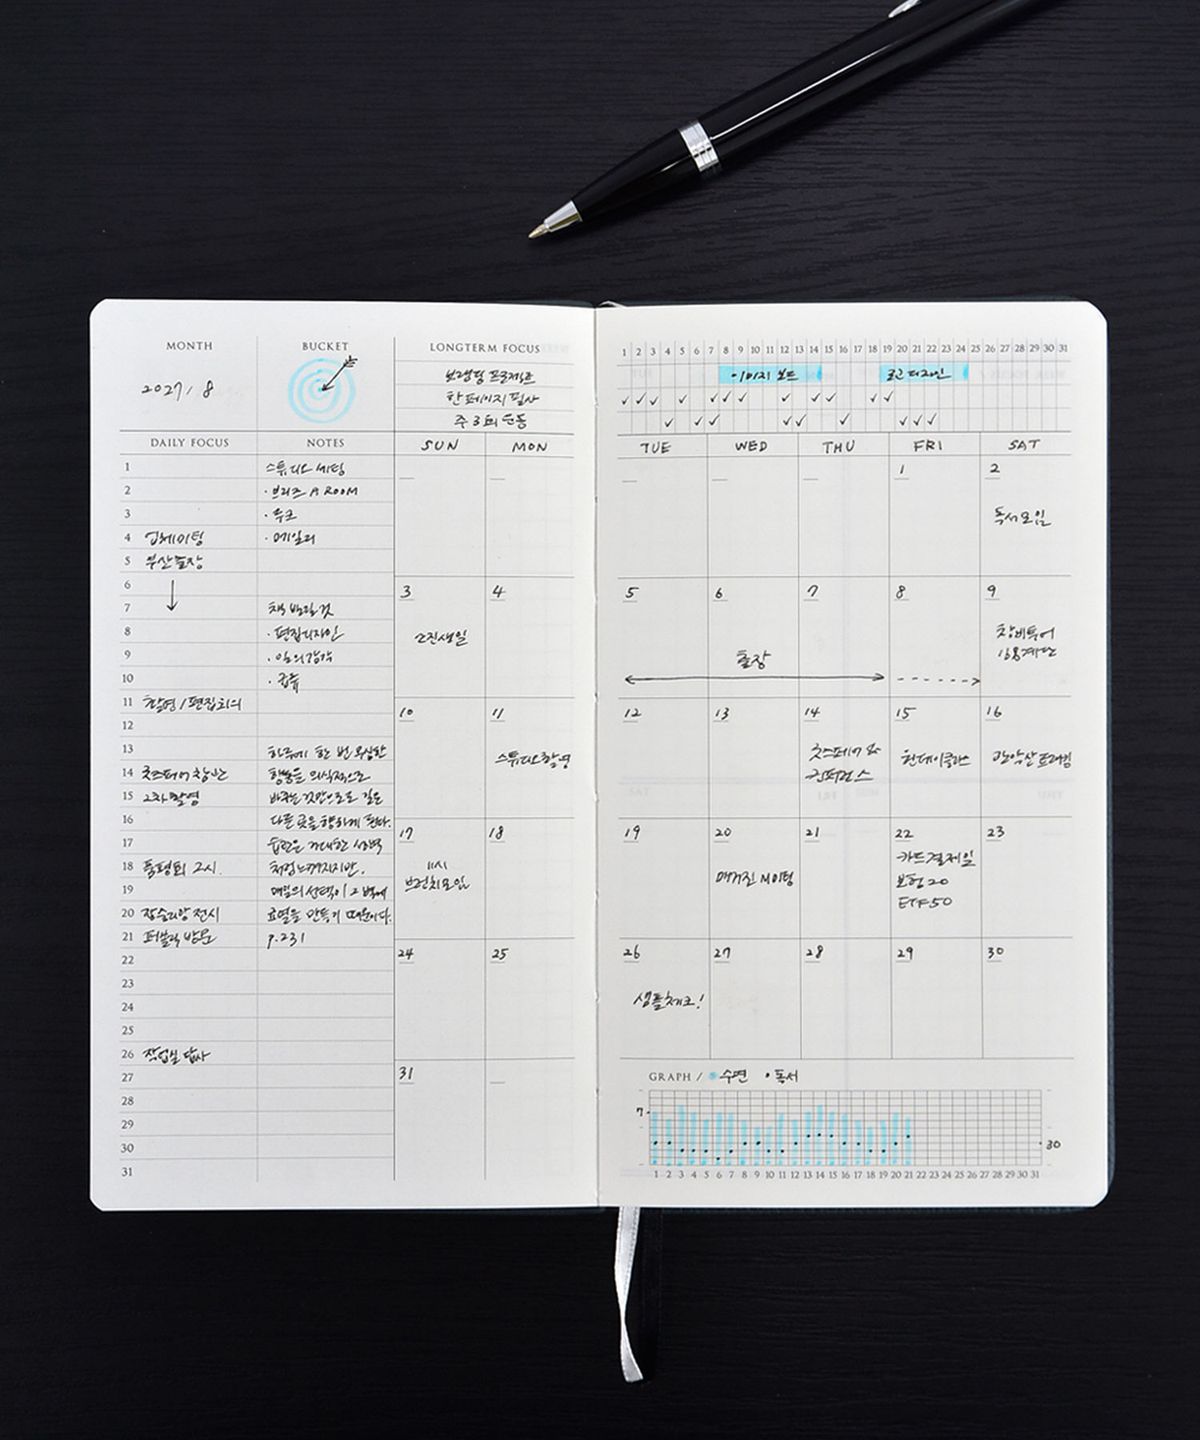 MONTH
2027 / 8
BUCKET
LONGTERM FOCUS
브랜딩 프로젝트
한 페이지 필사
주 3회 운동
1 2 3 4 5 6 7 8 9 10 11 12 13 14 15 16 17 18 19 20 21 22 23 24 25 26 27 28 29 30 31
이미지 보드
로고 디자인
DAILY FOCUS
1
2
3
4 업체미팅
5 부산출장
6
7
8
9
10
11 촬영 / 편집회의
12
13
14
15 2차 촬영
16
17
18 품평회 2시.
19
20 전시
21 방문
22
23
24
25
26 작업실 답사
27
28
29
30
31
NOTES
스튜디오 세팅
· A ROOM
· 루크
· 메일리
책 빌릴 것
· 편집디자인
· 일의감각
하루에 한 번 무심한
행동을 의식적으로
바꾸는 것만으로도 길은
다른 곳을 향하게 된다.
습관은 거대한 
처럼 느껴지지만,
매일의 선택이 그 벽에
균열을 만들기 때문이다.
p.231
SUN MON TUE WED THU FRI SAT
1
2
독서모임
3
생일
4
5
6
출장
7
8
9
10
11
스튜디오 촬영
12
13
14
컨퍼런스
15
원데이클래스
16
관악산 트래킹
17
11시
브런치모임
18
19
20
매거진 미팅
21
22
카드결제일
보험 20
ETF 50
23
24
25
26
샘플체크!
27
28
29
30
31
GRAPH / 수면 • 독서
7
30
1 2 3 4 5 6 7 8 9 10 11 12 13 14 15 16 17 18 19 20 21 22 23 24 25 26 27 28 29 30 31